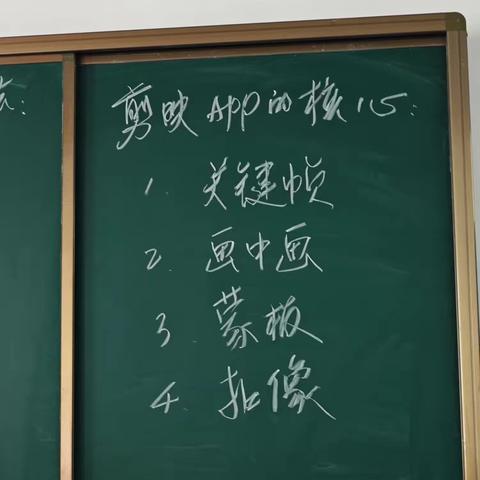 剪映APP的核心:
1. 关键帧
2. 画中画
3. 蒙板
4. 抠像